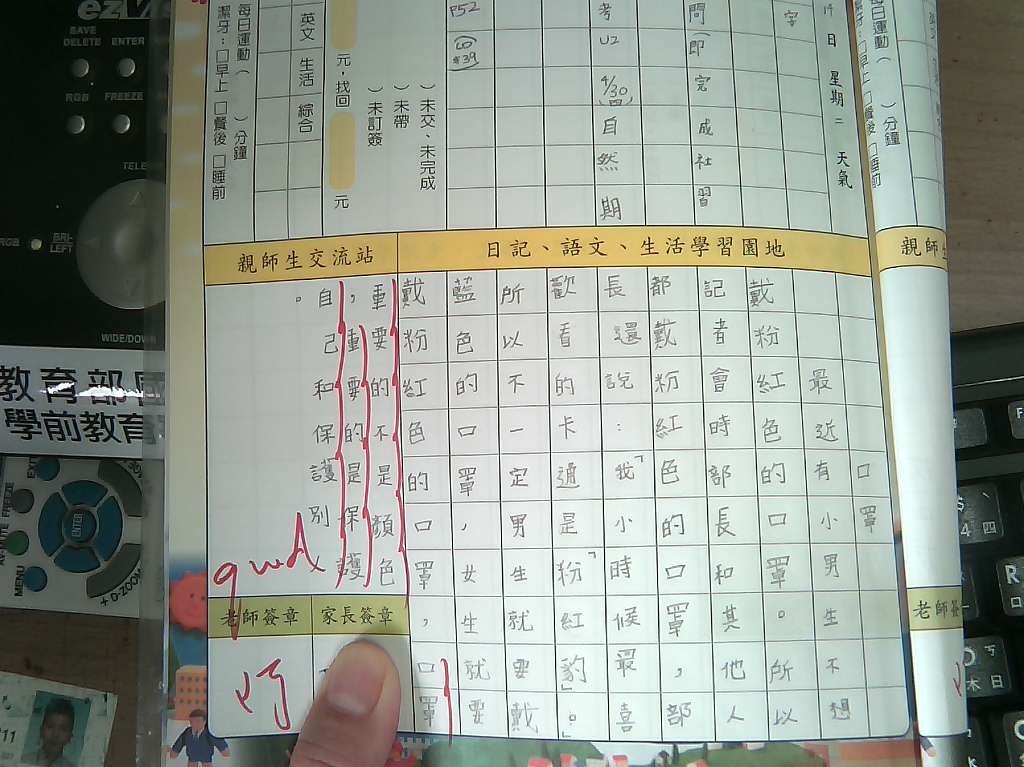 ezVi
SAVE
DELETE ENTER
RGB FREEZE
TELE
RGB
BRI-
LEFT
WIDE/DOWN
教育部國
學前教育
EXIT
FREEZE
MUTE
ENTER
MENU
D-ZOOM
11
日 星期二 天氣
字
問(即完成社習
考U2 4/30(四)自然期
P52
)未交、未完成
)未帶
)未訂簽
元,找回 元
英文 生活 綜合
每日運動( )分鐘
潔牙:□早上□餐後□睡前
每日運動( )分鐘
潔牙:□早上□餐後□睡前
日記、語文、生活學習園地
親師生交流站
親師生
口罩
最近有小男生不想
戴粉紅色的口罩。所以
記者會時部長和其他人
都戴粉紅色的口罩,部
長還說:「我小時候最喜
歡看的卡通是「粉紅豹」。」
所以不一定男生就要戴
藍色的口罩,女生就要
戴粉紅色的口罩,口罩
重要的不是顏色
,重要的是保護
自己和保護別
。
家長簽章
老師簽章
老師簽